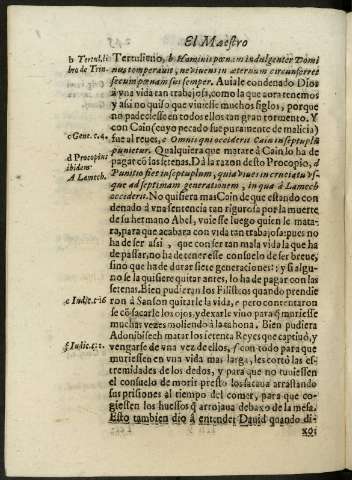 El Maestro
b Tertul. li
bro de Trin.
Tertuliano, b Hominis pœnam indulgenter Domi
nus temperauit, ne viuens in æternum circunferret
secum pœnam sus semper. Auiale condenado Dios
à vna vida tan trabajosa, como la que aora tenemos
y assi no quiso que viuiesse muchos siglos, porque
no padeciesse en todos ellos tan gran tormento. Y
con Cain (cuyo pecado fue puramente de malicia)
c Gene. c. 4.
fue al reues, c Omnis qui occiderit Cain inseptuplũ
punietur. Qualquiera que matare à Cain lo ha de
d Procopius
ibidem
A Lamech.
pagar cõ las setenas. Dà la razon desto Procopio, d
Punitio fiet inseptuplum, quia viuet in cruciatu vs-
que ad septimam generationem, in qua à Lamech
occideris. No quisiera mas Cain de que estando con
denado à vna sentencia tan rigurosa por la muerte
de su hermano Abel, viniesse luego quien le mata-
ra, para que acabara con vida tan trabajosa: pues no
ha de ser assi, que con ser tan mala vida la que ha
de passar, no ha de tener esse consuelo de ser breue,
sino que ha de durar siete generaciones: y si algu-
no se la quisiere quitar antes, lo ha de pagar con las
setenas. Bien pudieran los Filisteos quando prendie
e Iudic. c. 16
ron à Sanson quitarle la vida, e pero contentarõ
se cõ sacarle los ojos, y dexarle viuo para q̃ muriesse
muchas vezes moliendo à la tahona. Bien pudiera
Adonibisech matar los setenta Reyes que captiuò, y
f Iudic. c. 1.
vengarse de vna vez de ellos, f con todo para que
muriessen en vna vida mas larga, les cortò las es-
tremidades de los dedos, y para que no tuuiessen
el consuelo de morir presto los sacaua arrastrando
sus prisiones al tiempo del comer, para que co-
giessen los huessos q̃ arrojaua debaxo de la mesa.
Esto tambien diò à entender Dauid quando di-
xo: